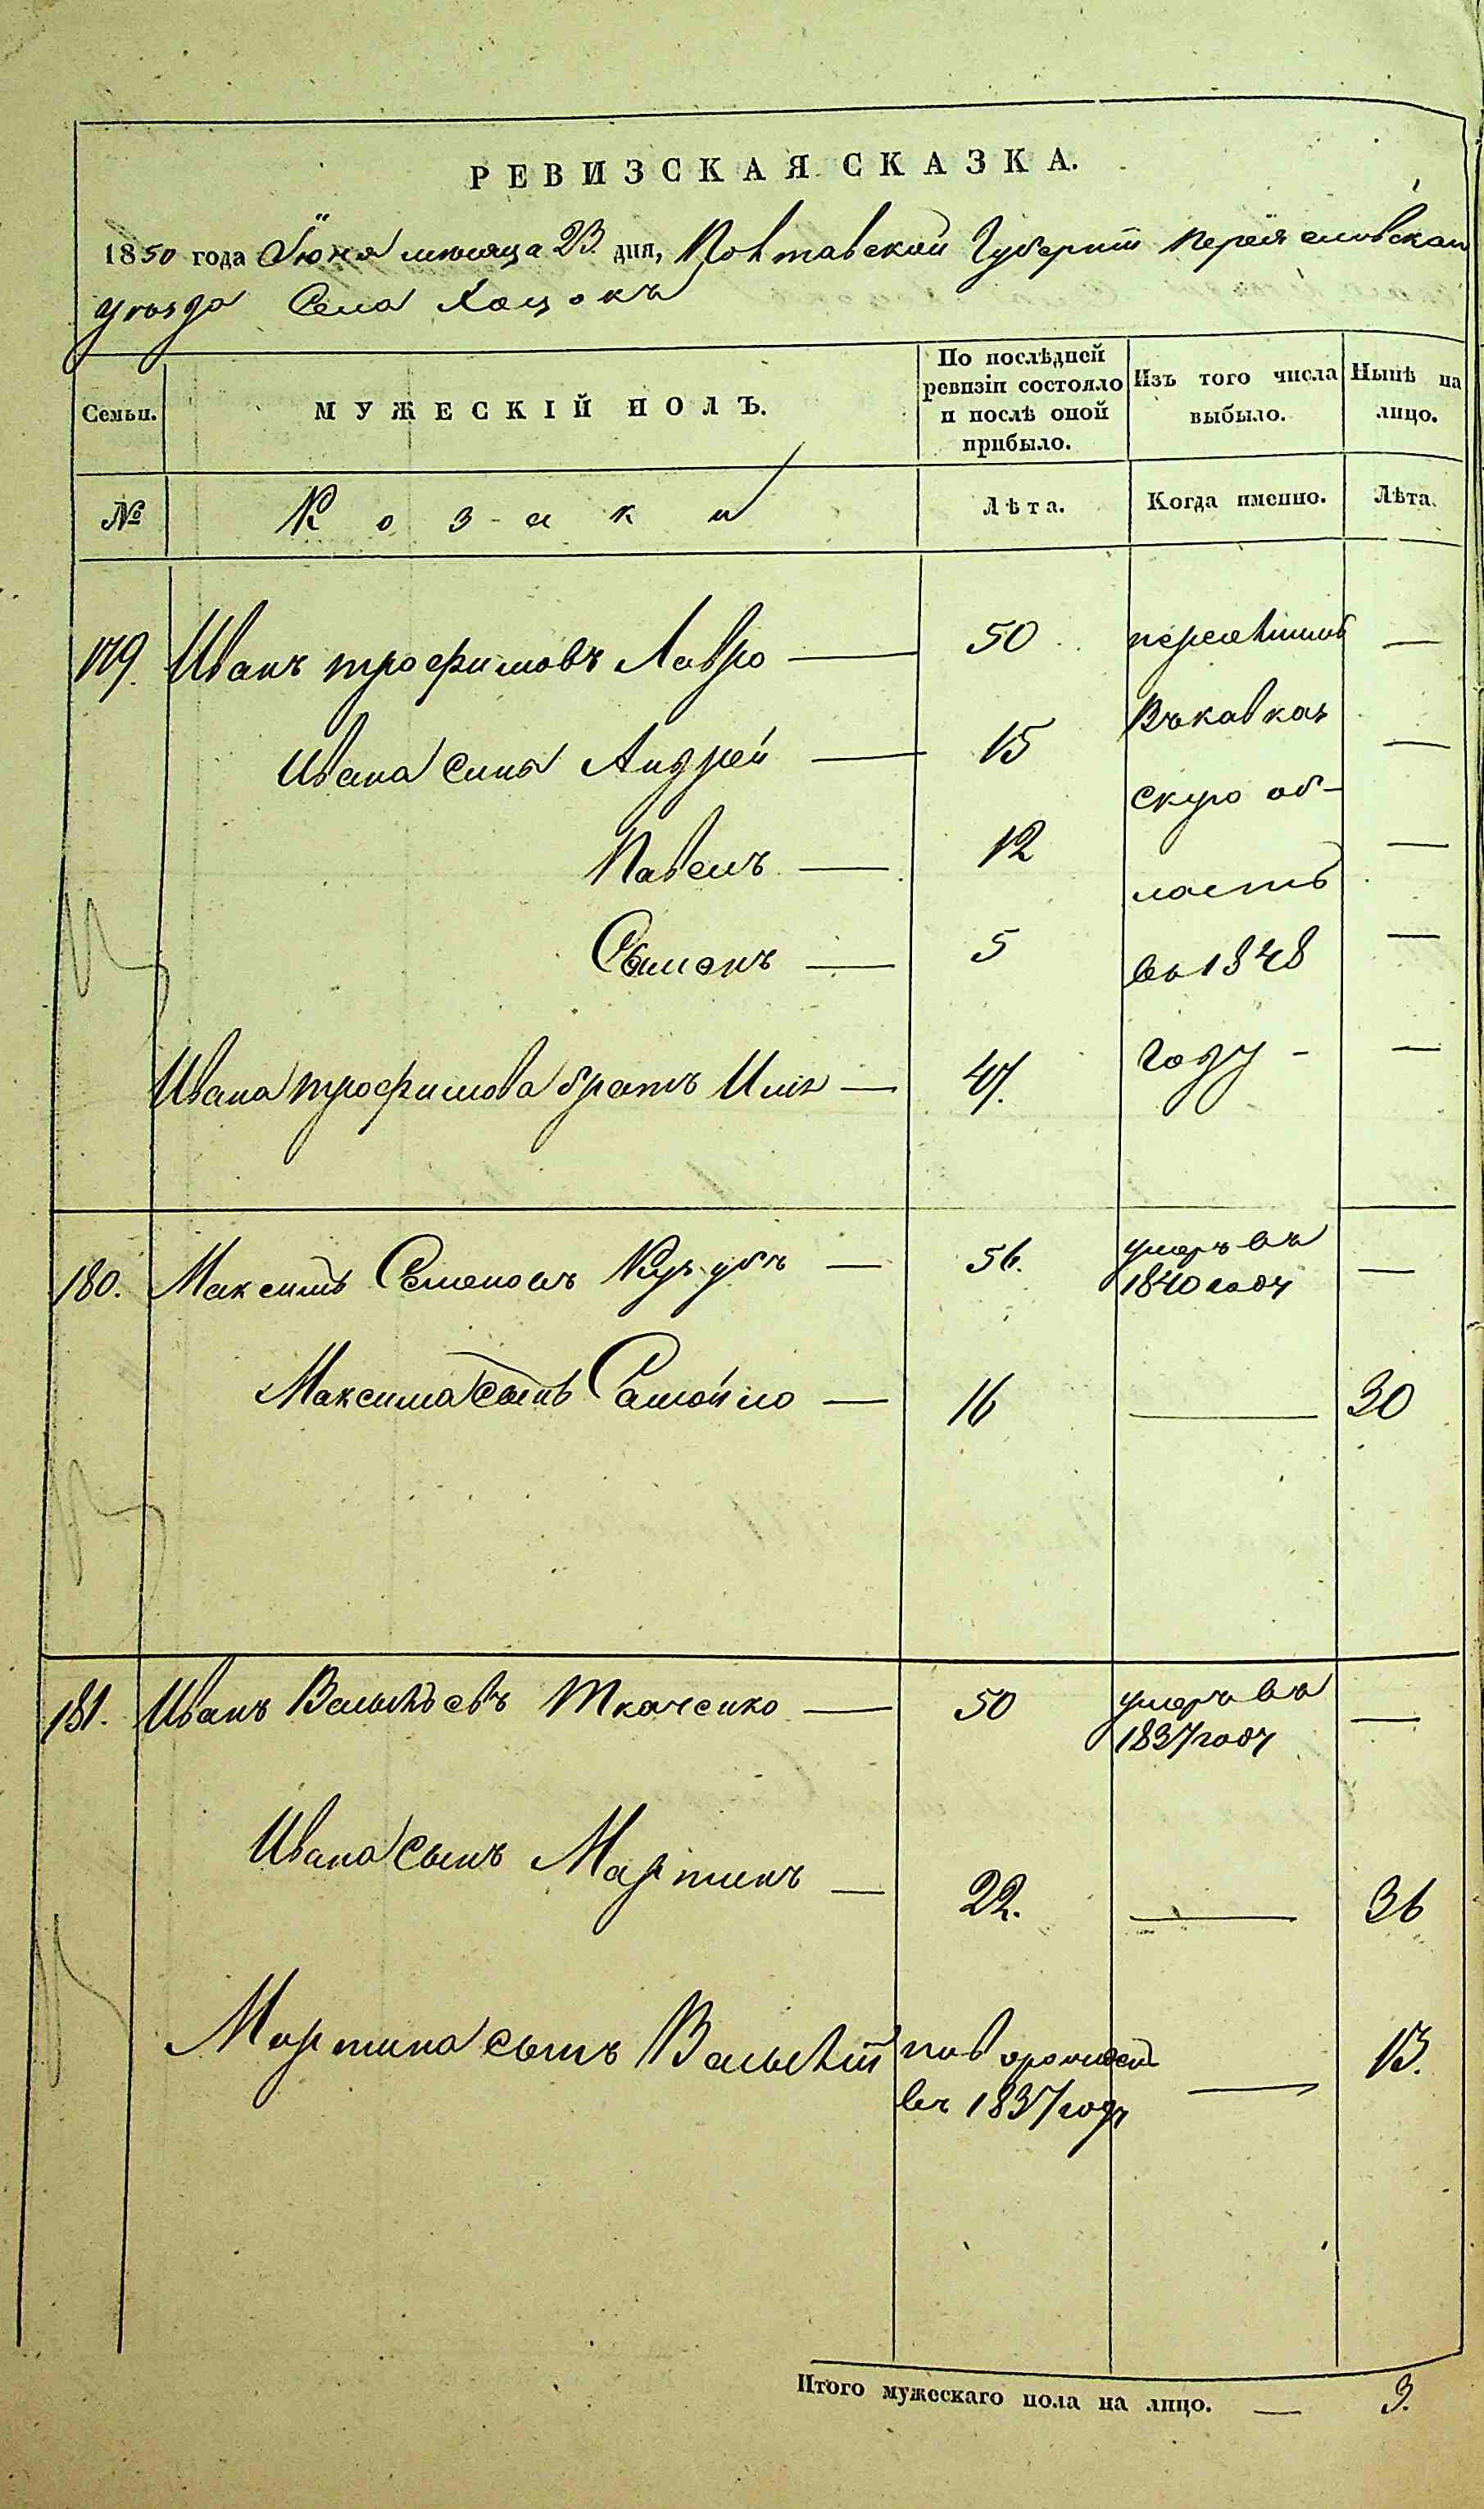 РЕВИЗСКАЯ СКАЗКА.
1850 года Іюня месяца 23 дня, Полтавской Губерніи Переяславскаго
уезда Села Хоцокъ
Семьи.
МУЖЕСКІЙ ПОЛЪ.
По послѣдней ревизіи состояло и послѣ оной прибыло.
Изъ того числа выбыло.
Нынѣ на лицо.
№
Козаки
Лѣта.
Когда именно.
Лѣта.
179. Иванъ трофимовъ Лавро — 50 переселились —
Ивана сины Андрей — 15 Въ кавказ —
Павелъ — 12 скую об- —
Семенъ — 5 ласть —
въ 1848
Ивана трофимова братъ Илія — 47. году - —
180. Максимъ Семеновъ — 56. умеръ въ 1840 году —
Максима сынъ Самойло — 16 — 30
181. Иванъ Васильевъ Ткаченко — 50 умеръ въ 1837 году —
Ивана сынъ Мартинъ — 22. — 36
Мартина сынъ Василій новорожден въ 1837 году — 13.
Итого мужескаго пола на лицо. — 3.